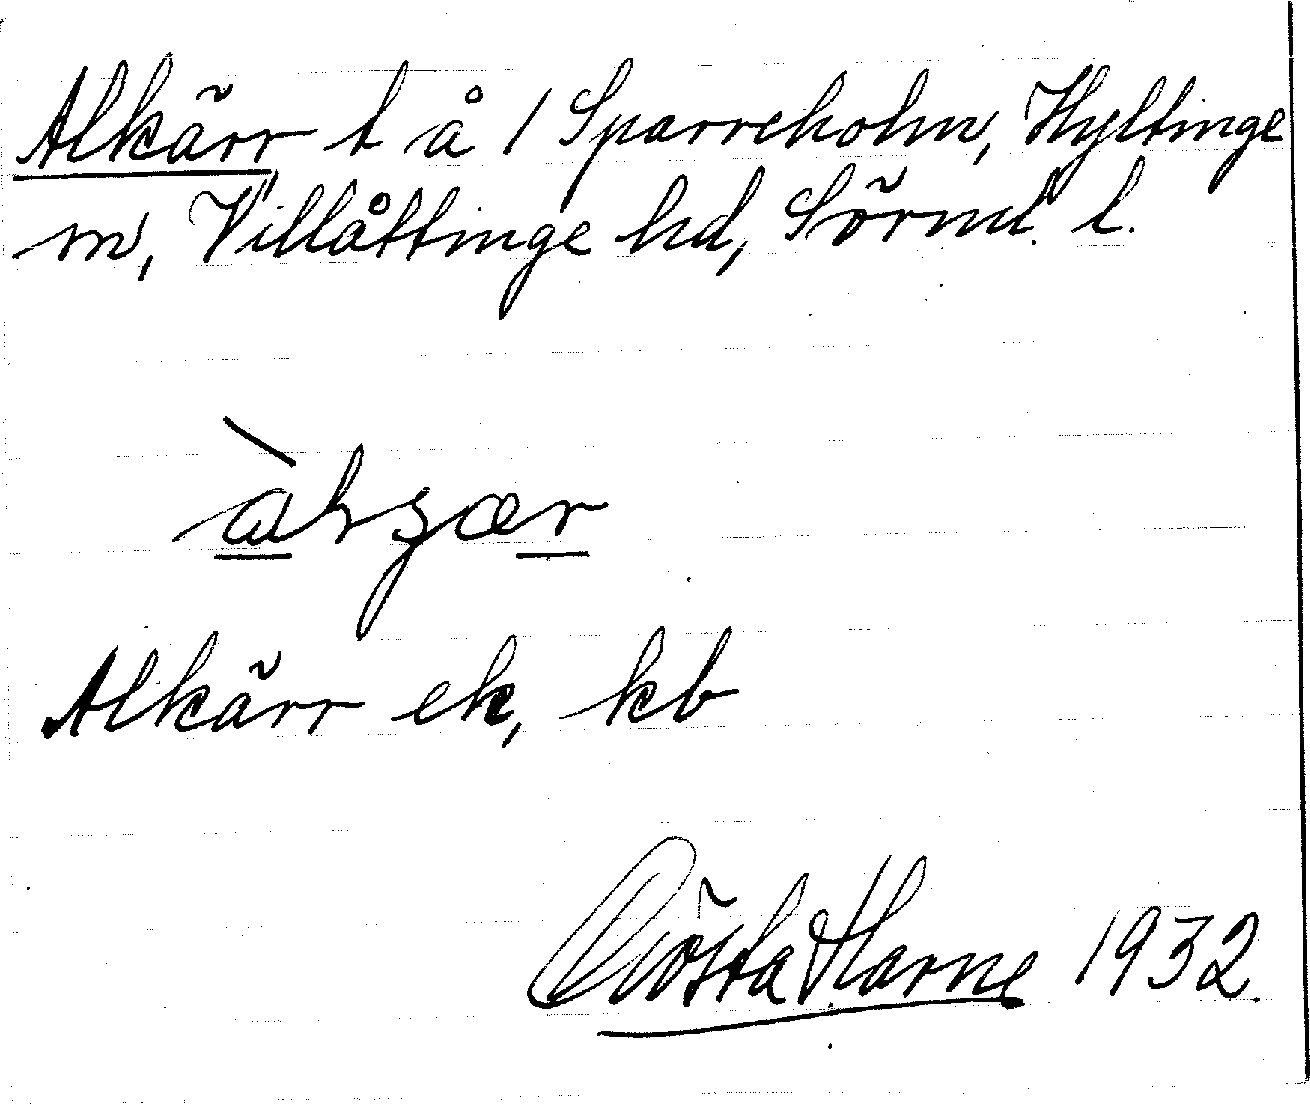 Alkärr t å / Sparreholm, Hyltinge
sn, Villåttinge hd, Sörml. l.
Alkärr ek, kb
Gösta Harne 1932.